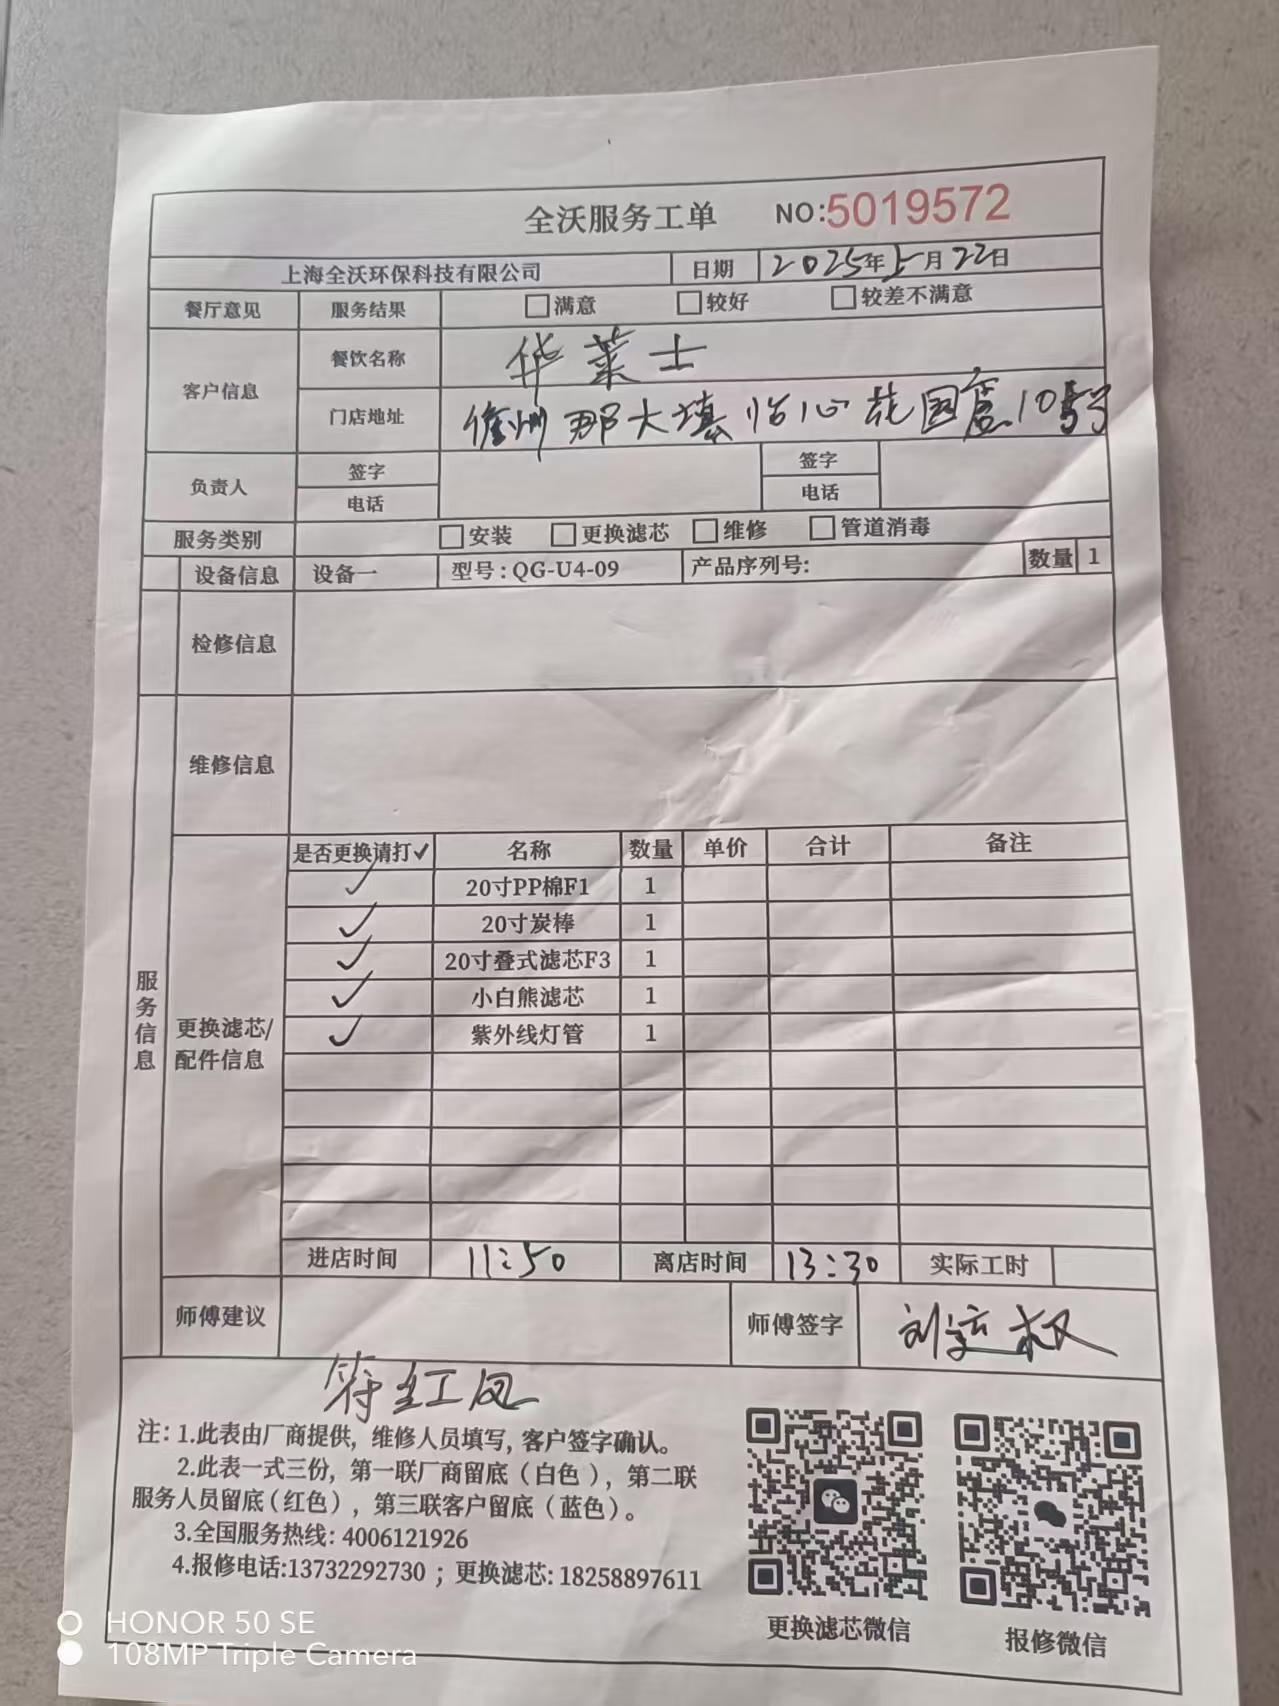 全沃服务工单 NO:5019572
上海全沃环保科技有限公司 日期 2025年5月22日
餐厅意见 服务结果 □满意 □较好 □较差不满意
客户信息 餐饮名称 华莱士
门店地址 儋州那大填怡心花园店10号
负责人 签字 签字
电话 电话
服务类别 □安装 □更换滤芯 □维修 □管道消毒
设备信息 设备一 型号:QG-U4-09 产品序列号: 数量 1
检修信息
维修信息
服务信息
更换滤芯/
配件信息
是否更换请打✓ 名称 数量 单价 合计 备注
✓ 20寸PP棉F1 1
✓ 20寸炭棒 1
✓ 20寸叠式滤芯F3 1
✓ 小白熊滤芯 1
✓ 紫外线灯管 1
进店时间 11:50 离店时间 13:30 实际工时
师傅建议 师傅签字 刘 权
符红凤
注: 1.此表由厂商提供, 维修人员填写, 客户签字确认。
2.此表一式三份, 第一联厂商留底(白色), 第二联
服务人员留底(红色), 第三联客户留底(蓝色)。
3.全国服务热线: 4006121926
4.报修电话:13732292730 ; 更换滤芯: 18258897611
更换滤芯微信 报修微信
HONOR 50 SE
108MP Triple Camera